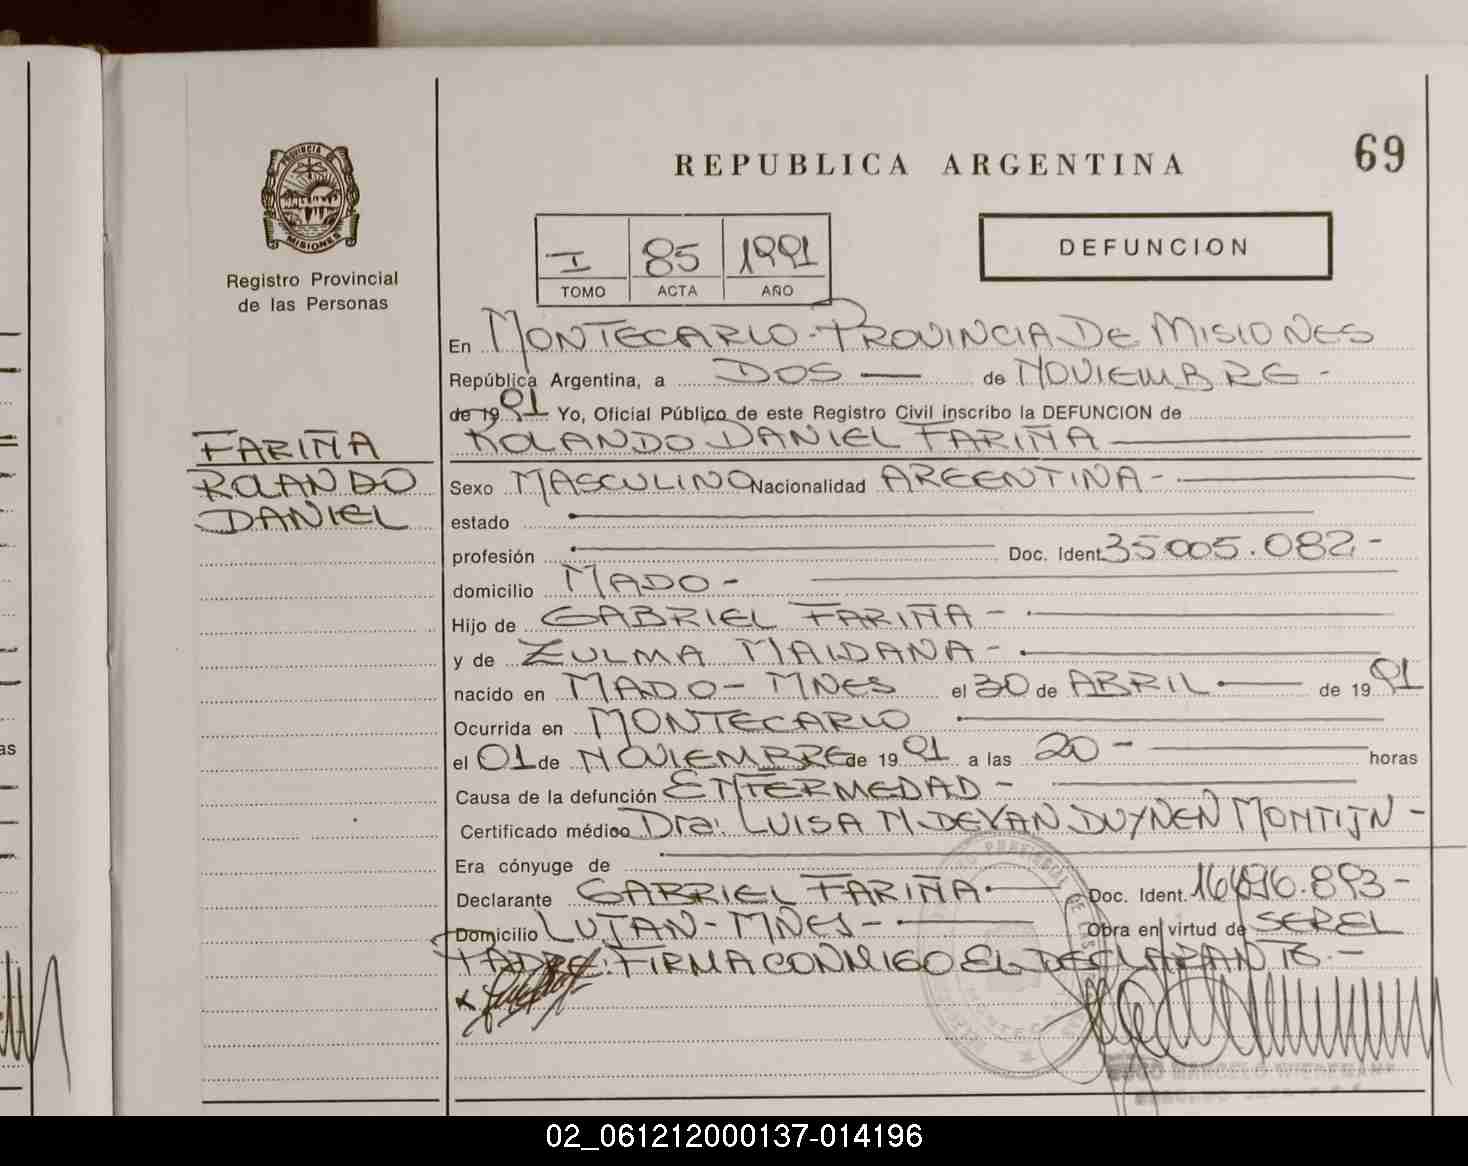 PROVINCIA DE
MISIONES
Registro Provincial
de las Personas
REPUBLICA ARGENTINA
69
I 85 1991
TOMO ACTA AÑO
DEFUNCION
En MONTECARLO - PROVINCIA DE MISIONES
República Argentina, a DOS de NOVIEMBRE -
de 1991 Yo, Oficial Público de este Registro Civil inscribo la DEFUNCION de
ROLANDO DANIEL FARIÑA
FARIÑA
ROLANDO
DANIEL
Sexo MASCULINO Nacionalidad ARGENTINA -
estado
profesión Doc. Ident. 35.005.082 -
domicilio MADO -
Hijo de GABRIEL FARIÑA -
y de ZULMA MAIDANA -
nacido en MADO - MNES el 30 de ABRIL de 1991
Ocurrida en MONTECARLO
el 01 de NOVIEMBRE de 1991 a las 20 - horas
Causa de la defunción ENFERMEDAD -
Certificado médico Dra: LUISA M. DE VAN DUYNEN MONTIJN -
Era cónyuge de
Declarante GABRIEL FARIÑA Doc. Ident. 16.696.893 -
Domicilio LUJAN - MNES - Obra en virtud de SEREL
PADRE: FIRMA CONMIGO EL DECLARANTE. -
MARCELO
02_061212000137-014196